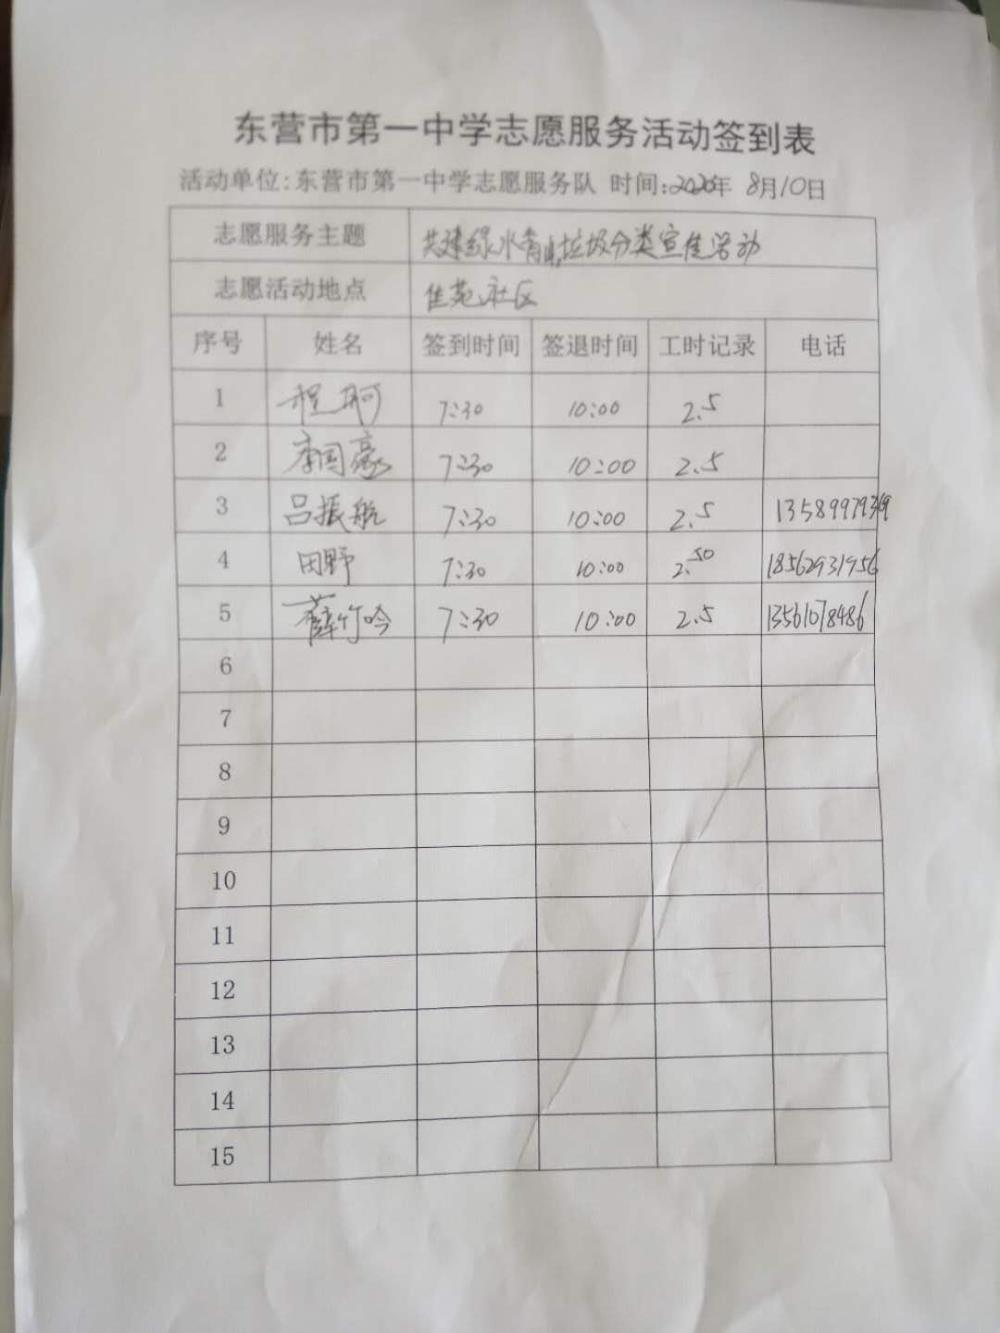 东营市第一中学志愿服务活动签到表
活动单位:东营市第一中学志愿服务队 时间:2020年 8月10日
志愿服务主题 共建绿水青山,垃圾分类宣传活动
志愿活动地点 佳苑社区
序号 姓名 签到时间 签退时间 工时记录 电话
1 程 7:30 10:00 2.5
2 李国豪 7:30 10:00 2.5
3 吕振航 7:30 10:00 2.5
4 田野 7:30 10:00 2.50 18562931956
5 薛竹吟 7:30 10:00 2.5 13561078486
6
7
8
9
10
11
12
13
14
15